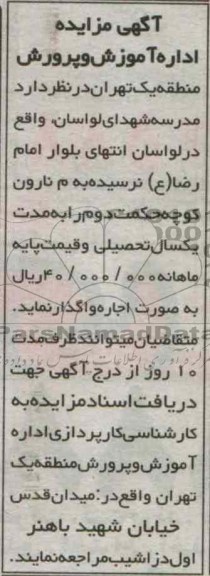 آگهی مزایده
اداره آموزش و پرورش
منطقه یک تهران در نظر دارد
مدرسه شهدای لواسان، واقع
در لواسان انتهای بلوار امام
رضا(ع) نرسیده به م نارون
کوچه حکمت دوم را به مدت
یکسال تحصیلی و قیمت پایه
ماهانه ۴۰/۰۰۰/۰۰۰ ریال
به صورت اجاره واگذار نماید.
متقاضیان میتوانند ظرف مدت
۱۰ روز از درج آگهی جهت
دریافت اسناد مزایده به
کارشناسی کارپردازی اداره
آموزش و پرورش منطقه یک
تهران واقع در: میدان قدس
خیابان شهید باهنر
اول دزاشیب مراجعه نمایند.
ParsNamadData